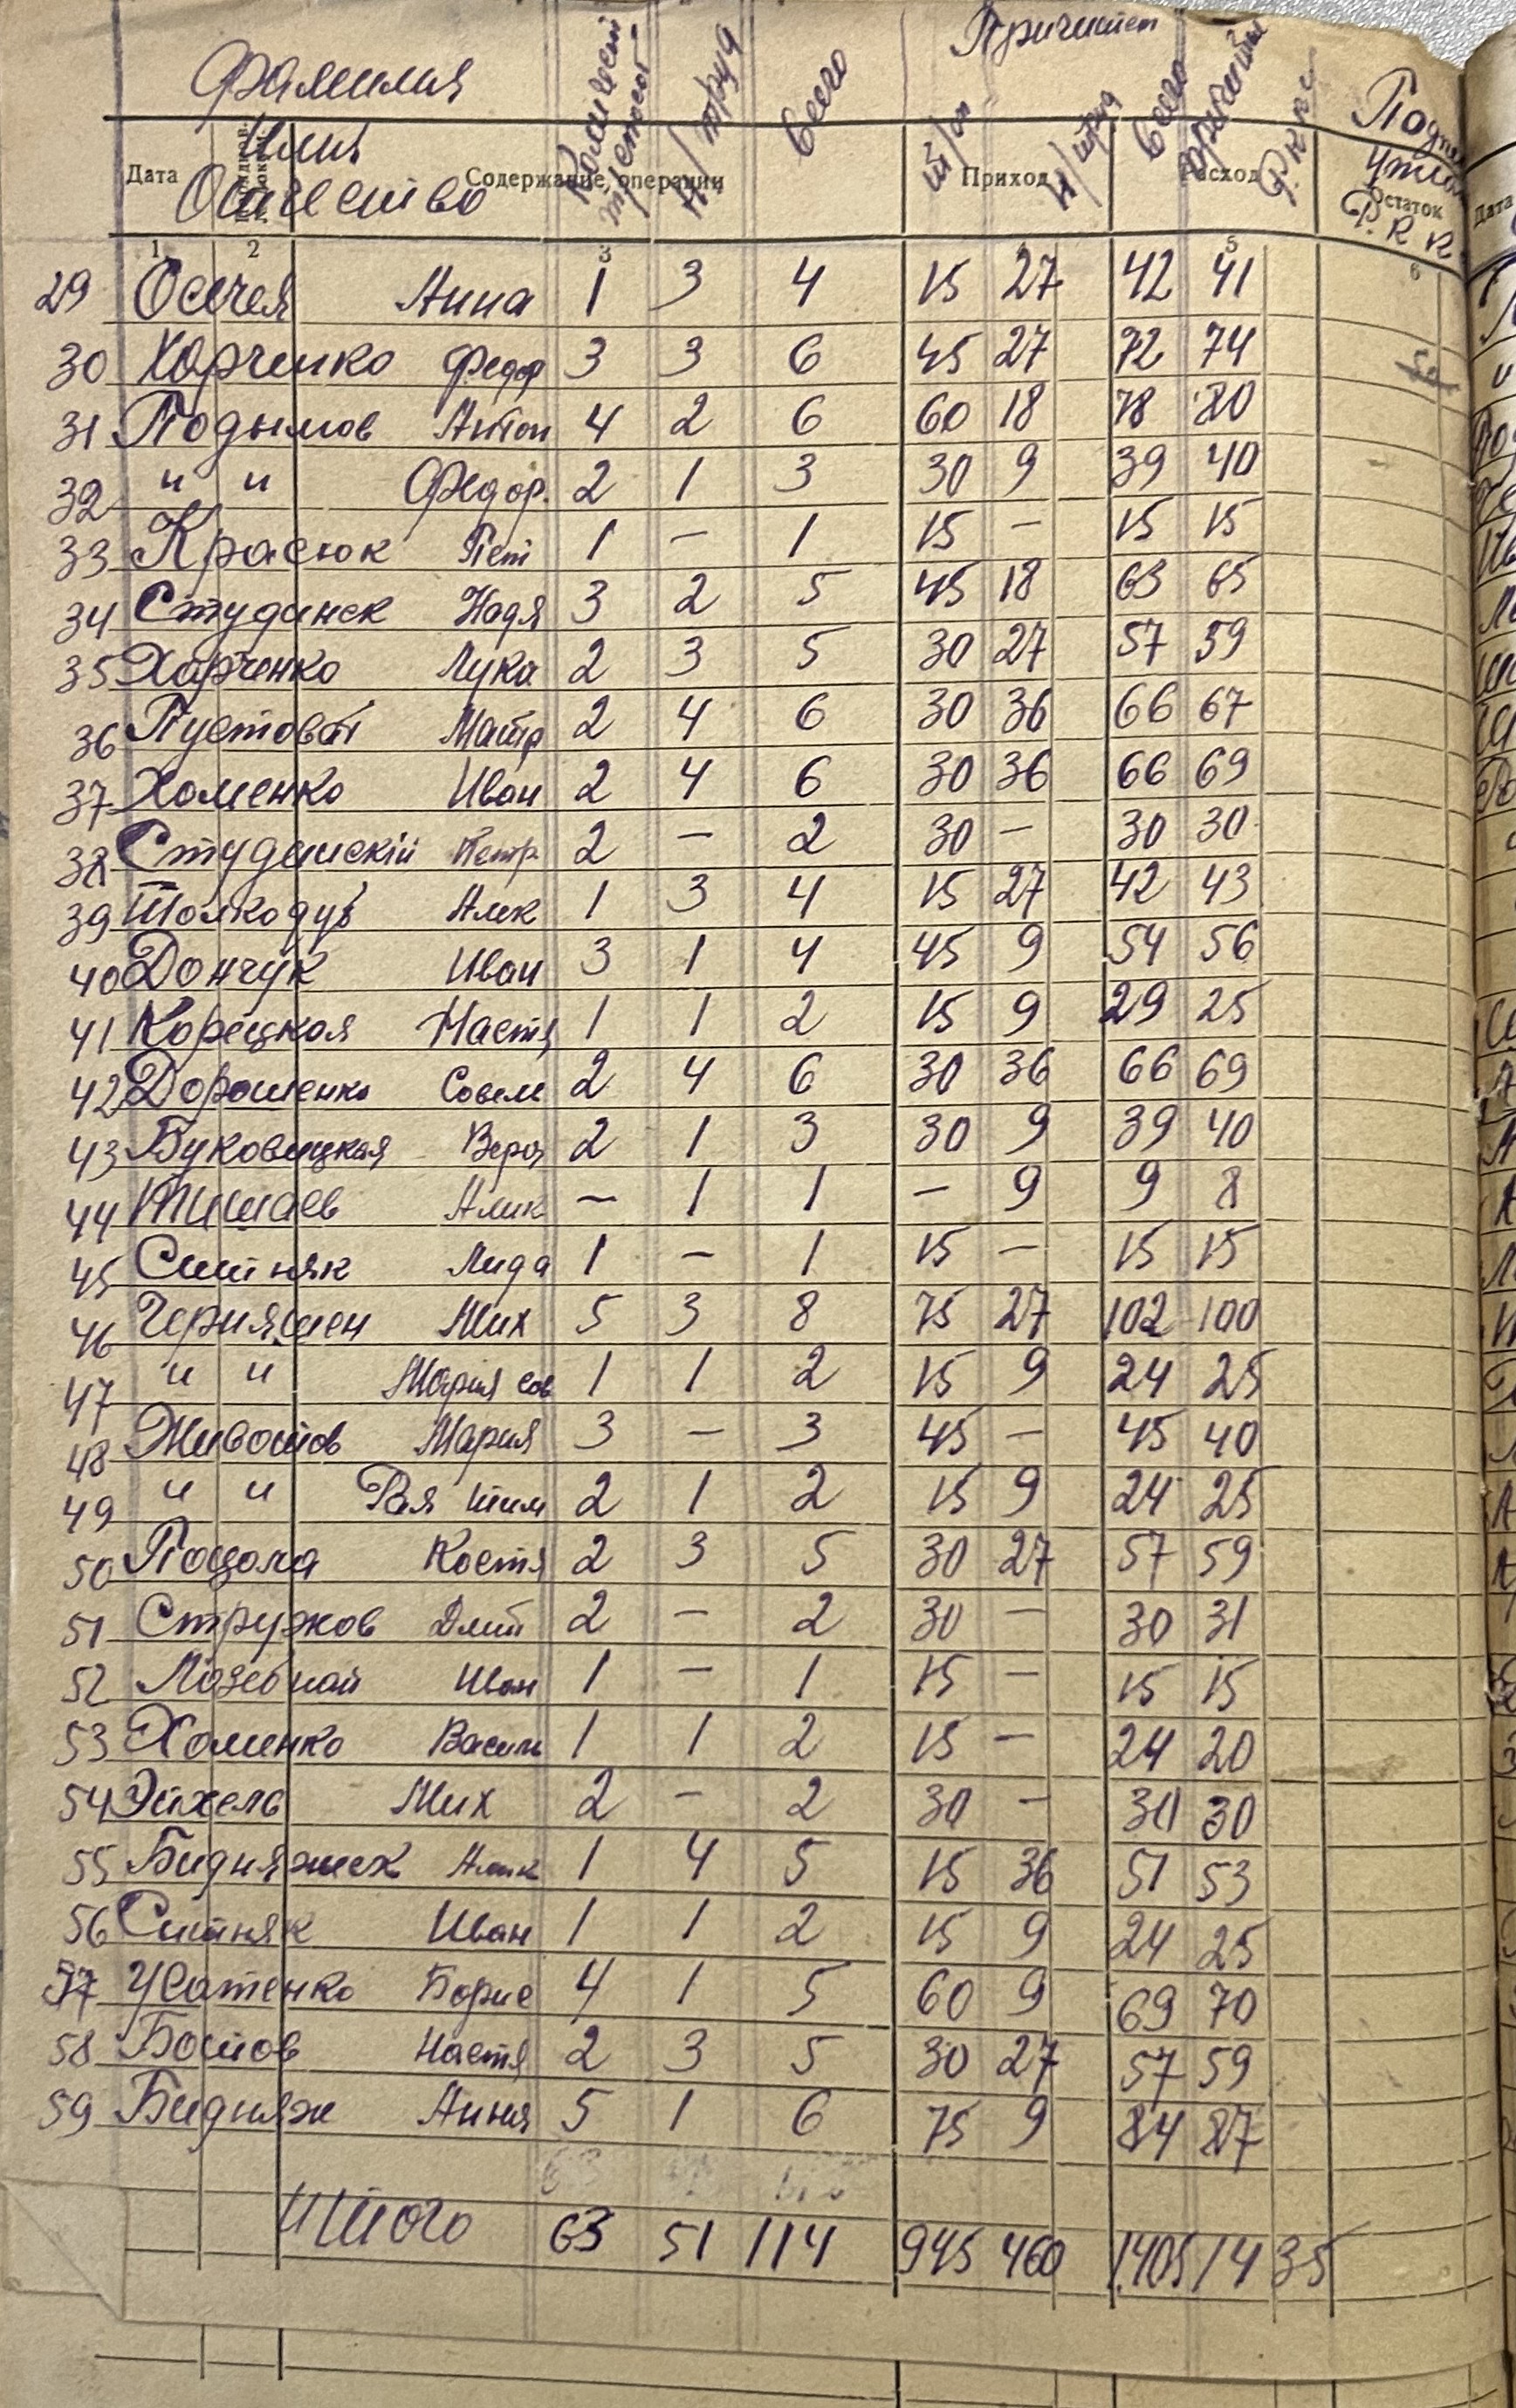 Фамилия Количест трудосп Н/труд Всего Причитает
Имя Т/сп Н/труд Всего
Дата Содержание операции Приход Расход Остаток
Отчество Р.К.К.
1 2 3 5 6
29 Осичея Анна 1 3 4 15 27 42 41
30 Хорченко Федор 3 3 6 45 27 72 74
31 Подымов Антон 4 2 6 60 18 78 80
32 " " Федор. 2 1 3 30 9 39 40
33 Красюк Пет 1 — 1 15 — 15 15
34 Студинск Надя 3 2 5 45 18 63 65
35 Харченко Лука 2 3 5 30 27 57 59
36 Пустовой Матр 2 4 6 30 36 66 67
37 Хоменко Иван 2 4 6 30 36 66 69
38 Студинскiй Петр 2 — 2 30 — 30 30
39 Толкодуб Алек 1 3 4 15 27 42 43
40 Дончук Иван 3 1 4 45 9 54 56
41 Корецкая Настя 1 1 2 15 9 29 25
42 Дорошенко Савел 2 4 6 30 36 66 69
43 Буковецкая Вера 2 1 3 30 9 39 40
44 Тишаев Алик — 1 1 — 9 9 8
45 Ситняк Лида 1 — 1 15 — 15 15
46 Черняшен Мих 5 3 8 75 27 102 100
47 " " Мария сав 1 1 2 15 9 24 25
48 Животов Мария 3 — 3 45 — 45 40
49 " " Рая тим 2 1 2 15 9 24 25
50 Поцола Костя 2 3 5 30 27 57 59
51 Стружков Дмит 2 — 2 30 — 30 31
52 Лозебной Иван 1 — 1 15 — 15 15
53 Хоменко Васил 1 1 2 15 — 24 20
54 Эйхель Мих 2 — 2 30 — 30 30
55 Бидняжек Алик 1 4 5 15 36 51 53
56 Ситняк Иван 1 1 2 15 9 24 25
57 Усатенко Борис 4 1 5 60 9 69 70
58 Ботов Настя 2 3 5 30 27 57 59
59 Бидняж Анна 5 1 6 75 9 84 87
Итого 63 51 114 945 460 1405 1435